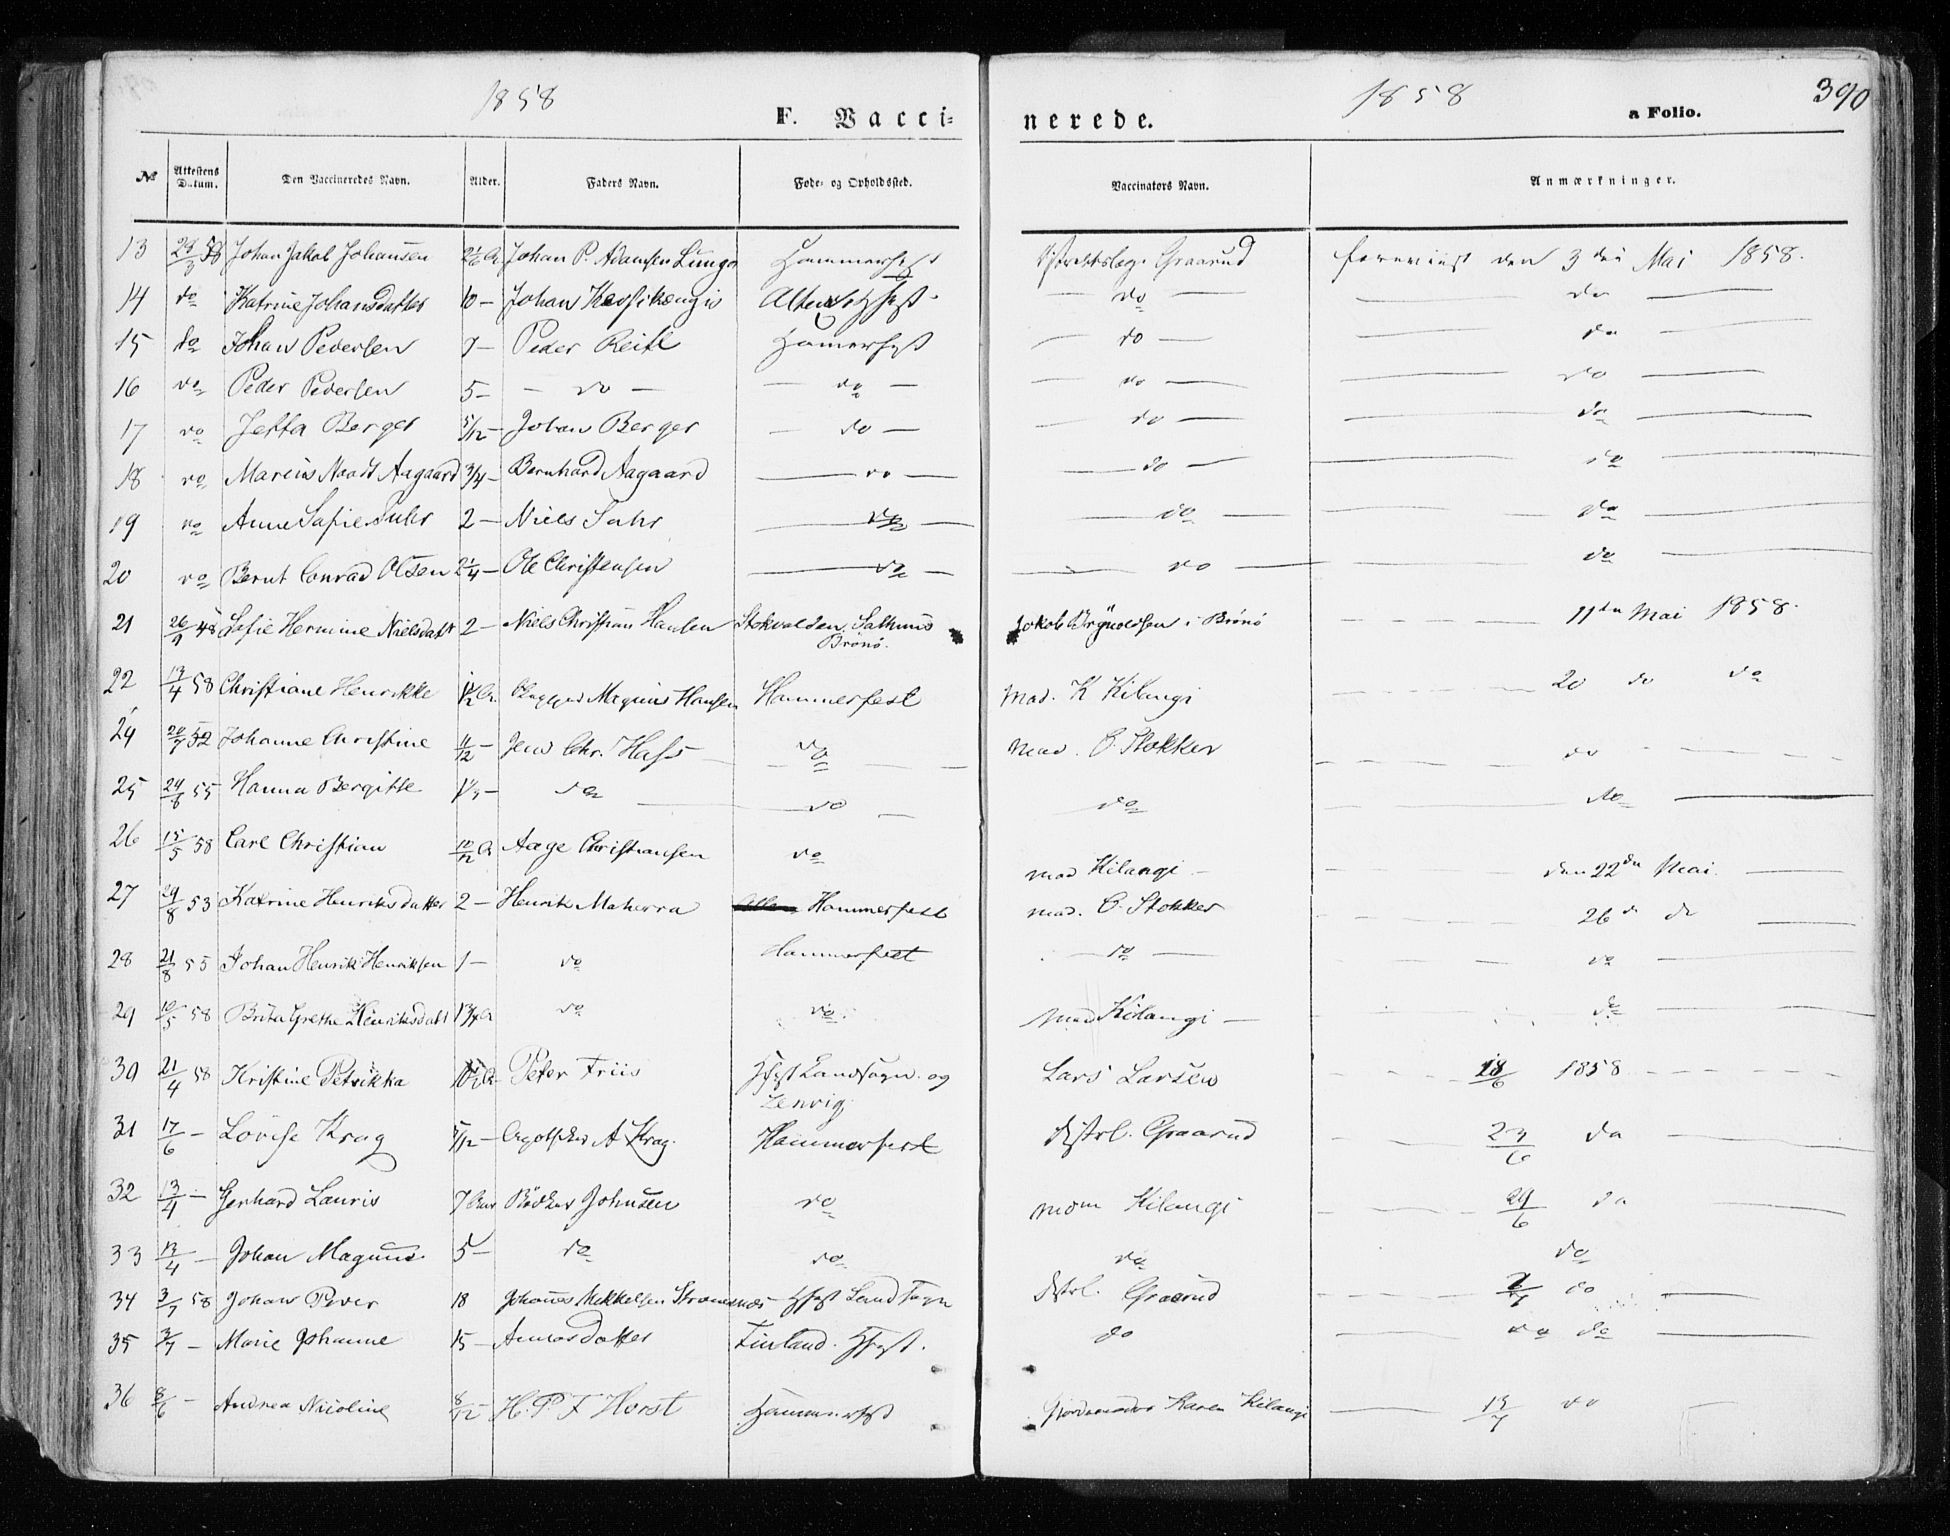 1858 1858 390
F. Vacci- nerede. a Folio.
№ Attestens Datum. Den Vaccineredes Navn. Alder. Faders Navn. Føde- og Opholdssted. Vaccinators Navn. Anmærkninger.
13 58 Johan Jakob Johansen Johan P. Adamsen Hammerfest Graarud foreviist den 3die Mai 1858.
14 do Katrine Johansdatter 10 – Johan do do
15 do Johan Pedersen 7 – Peder Hamerfest do do
16 do Peder Pedersen 5 – – do – do do do
17 do Berger 5/12 – Johan Berger do do do
18 do Aagaard 3/4 – Bernhard Aagaard do do do
19 do Anne Sofie 2 – Niels do do do
20 do Bernt Conrad Olsen 2 1/4 – Ole Christensen do do do
21 Sofie Hermine Nielsdatt 2 – Niels Christian Hansen Brønø. Jakob i Brønø 11te Mai 1858.
22 13/4 58 Christiane Henrikke Magnus Hansen Hammerfest Mad. K Kilangi 20 do do
24 52 Johanne Christine 11/12 – Jens Chr. do Mad. C. Stokker do
25 55 Hanna Bergitte do do do do
26 15/5 58 Carl Christian 10/12 Aage Christiansen do mad Kilangi den 22de Mai.
27 29/8 53 Katrine Henriksdatter 2 – Henrik Hammerfest mad. C. Stokker 26 do
28 21/8 55 Johan Henrik Henriksen 1 – do Hammerfest do do
29 58 Henriksdatt 1 3/4 do do Mad Kilangi do
30 21/4 58 Kristine Petrikka Peter Friis Hfest Landsogn. og Lars Larsen 18/6 1858
31 17/6 – Lovise Krag 5/12 – A Krag. Hammerfest distrl. Graarud 23/6 do
32 13/4 – Gerhard Lauris 7 Bødker Johnsen do Kilangi 29/6 do
33 13/4 – Johan Magnus 5 – do do do do
34 3/7 58 Johan Peder 18 Johannes Mikkelsen Hfest Landsogn distrl. Graarud do
35 3/7 – Marie Johanne 15 – Finland. Hfest. do do do
36 8/6 – Andrea Nicoline 8/12 – H. P. F Horst Hammerfest Karen Kilangi 13/7 do